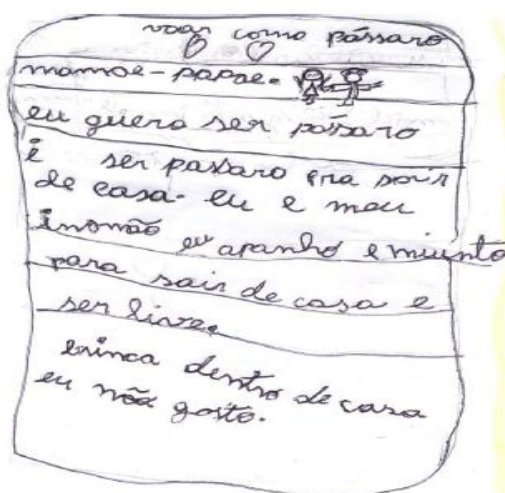 voar como pássaro
mamoe-papae.
eu quero ser pásaro
i ser passaro pra sair
de casa. eu e meu
inomão eu apanho e miunto
para sair de casa e
ser livre.
brinca dentro de casa
eu não gosto.